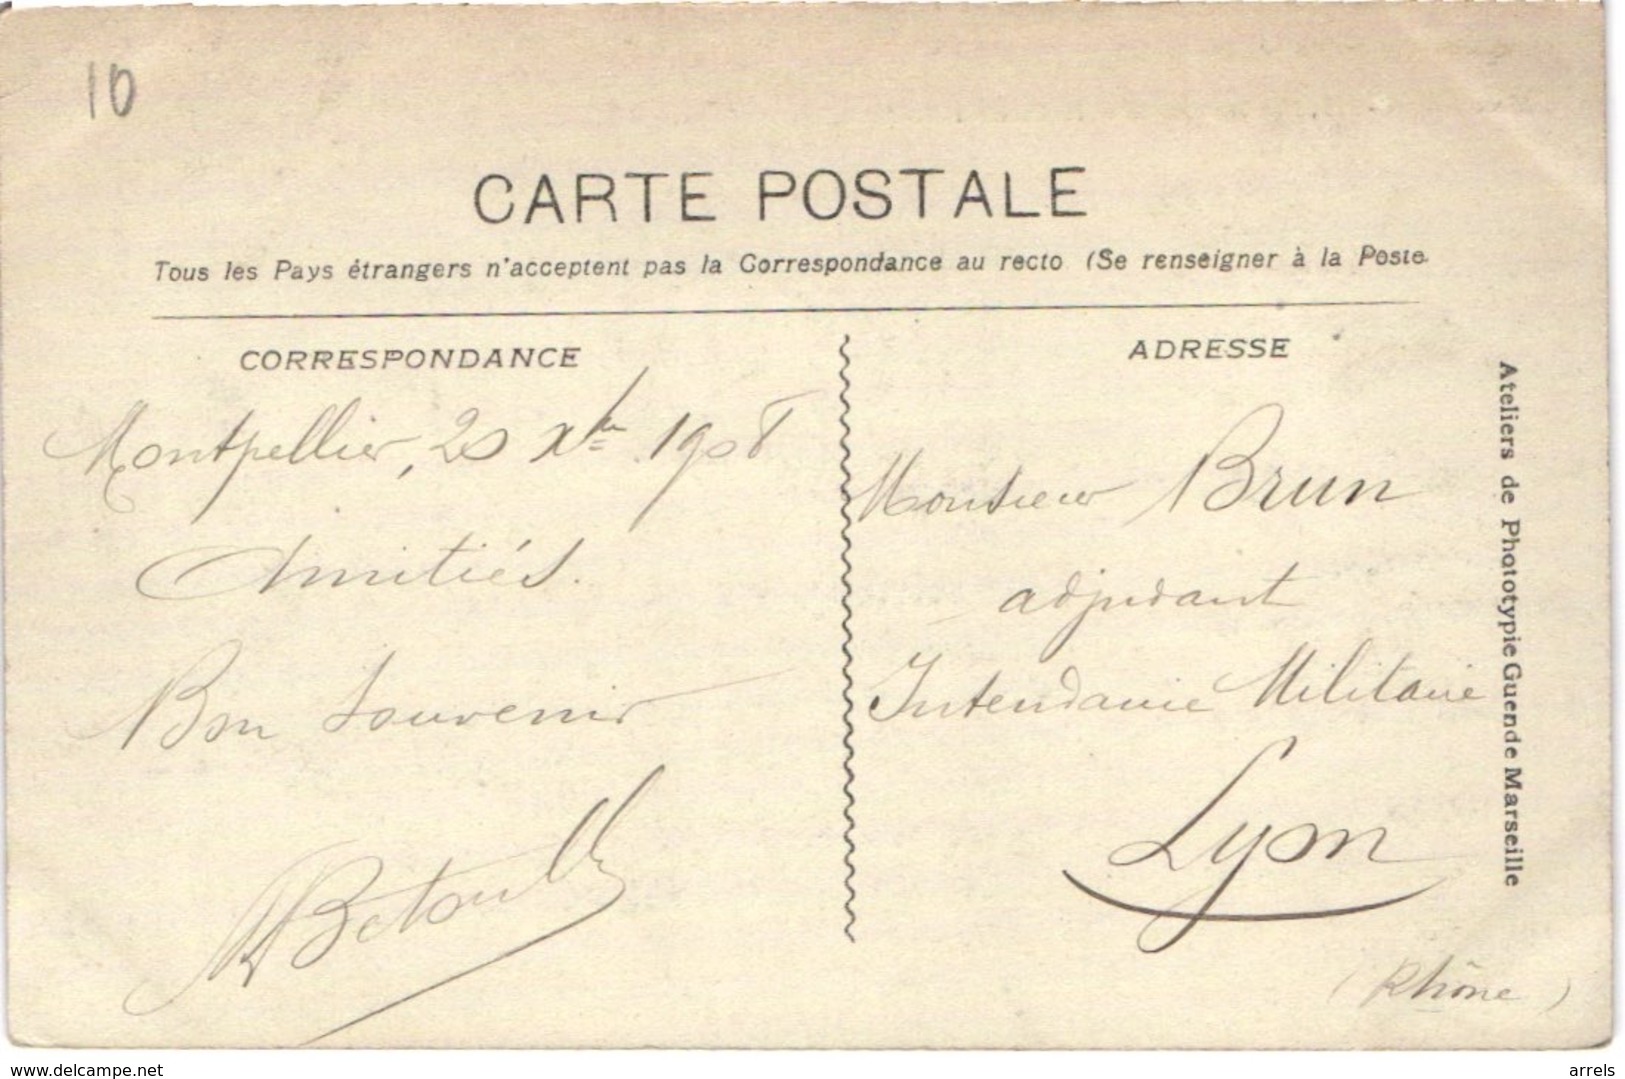 10
CARTE POSTALE
Tous les Pays étrangers n'acceptent pas la Correspondance au recto (Se renseigner à la Poste
CORRESPONDANCE
Montpellier, 20 Xbre 1908
Amitiés.
Bon Souvenir
ADRESSE
Monsieur Brun
adjudant
Intendance Militaire
Lyon
(Rhône)
Ateliers de Phototypie Guende Marseille
www.delcampe.net
arrels